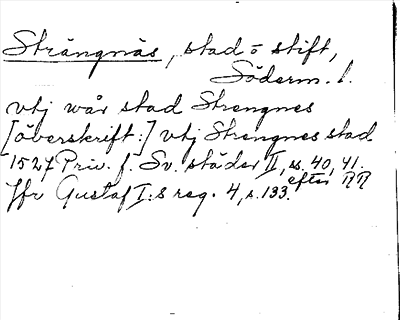 Strängnäs, stad o stift,
Söderm. l.
vtj wår stad Strengnes
[överskrift:] vtj Strengnes stad
1527 Priv. f. Sv. städer II, ss. 40, 41.
efter RR
Jfr Gustaf I:s reg. 4, s. 133.